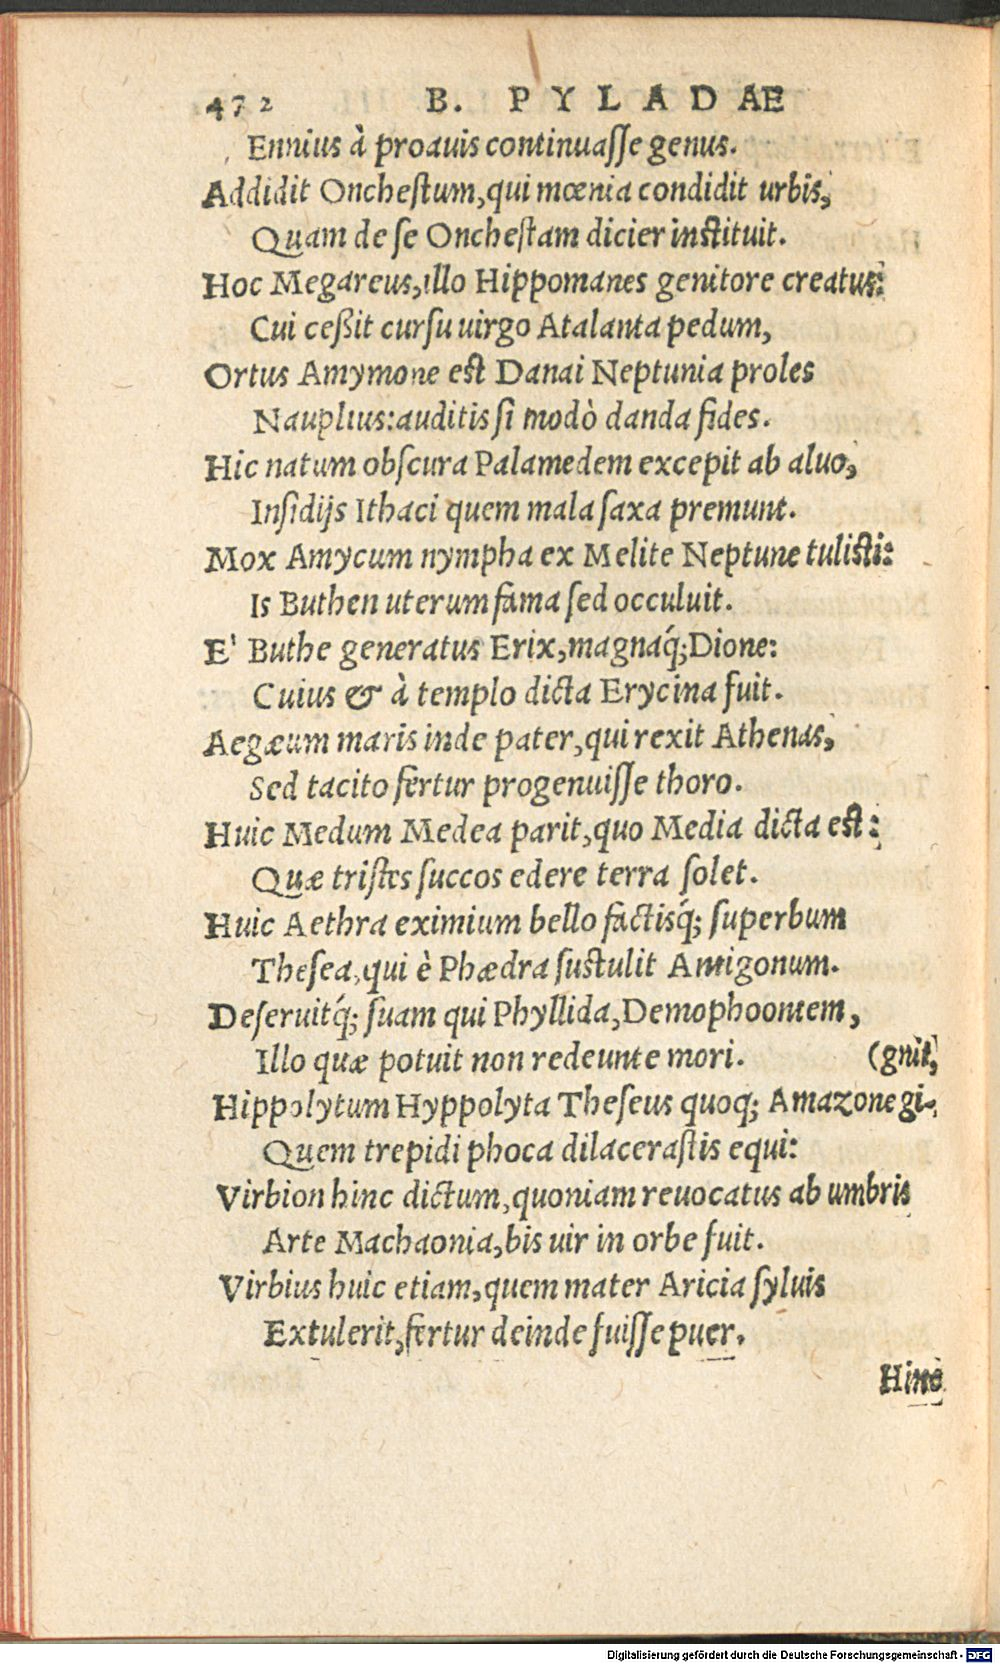 472 B. PYLADAE
Ennius à proauis continuaſſe genus.
Addidit Oncheſtum, qui mœnia condidit urbis,
Quam de ſe Oncheſtam dicier inſtituit.
Hoc Megareus, illo Hippomanes genitore creatus:
Cui ceßit curſu uirgo Atalanta pedum,
Ortus Amymone eſt Danai Neptunia proles
Nauplius: auditis ſi modò danda fides.
Hic natum obſcura Palamedem excepit ab aluo,
Inſidijs Ithaci quem mala ſaxa premunt.
Mox Amycum nympha ex Melite Neptune tuliſti:
Is Buthen uterum fama ſed occuluit.
E' Buthe generatus Erix, magnaq́; Dione:
Cuius & à templo dicta Erycina fuit.
Aegæum maris inde pater, qui rexit Athenas,
Sed tacito fertur progenuiſſe thoro.
Huic Medum Medea parit, quo Media dicta eſt:
Quæ triſtes ſuccos edere terra ſolet.
Huic Aethra eximium bello factisq́; ſuperbum
Theſea, qui è Phædra ſuſtulit Antigonum.
Deſeruitq́; ſuam qui Phyllida, Demophoontem,
Illo quæ potuit non redeunte mori. (gnit,
Hippolytum Hyppolyta Theſeus quoq; Amazone gi-
Quem trepidi phoca dilaceraſtis equi:
Virbion hinc dictum, quoniam reuocatus ab umbris
Arte Machaonia, bis uir in orbe fuit.
Virbius huic etiam, quem mater Aricia ſyluis
Extulerit, fertur deinde fuiſſe puer.
Hinc
Digitalisierung gefördert durch die Deutsche Forschungsgemeinschaft - DFG